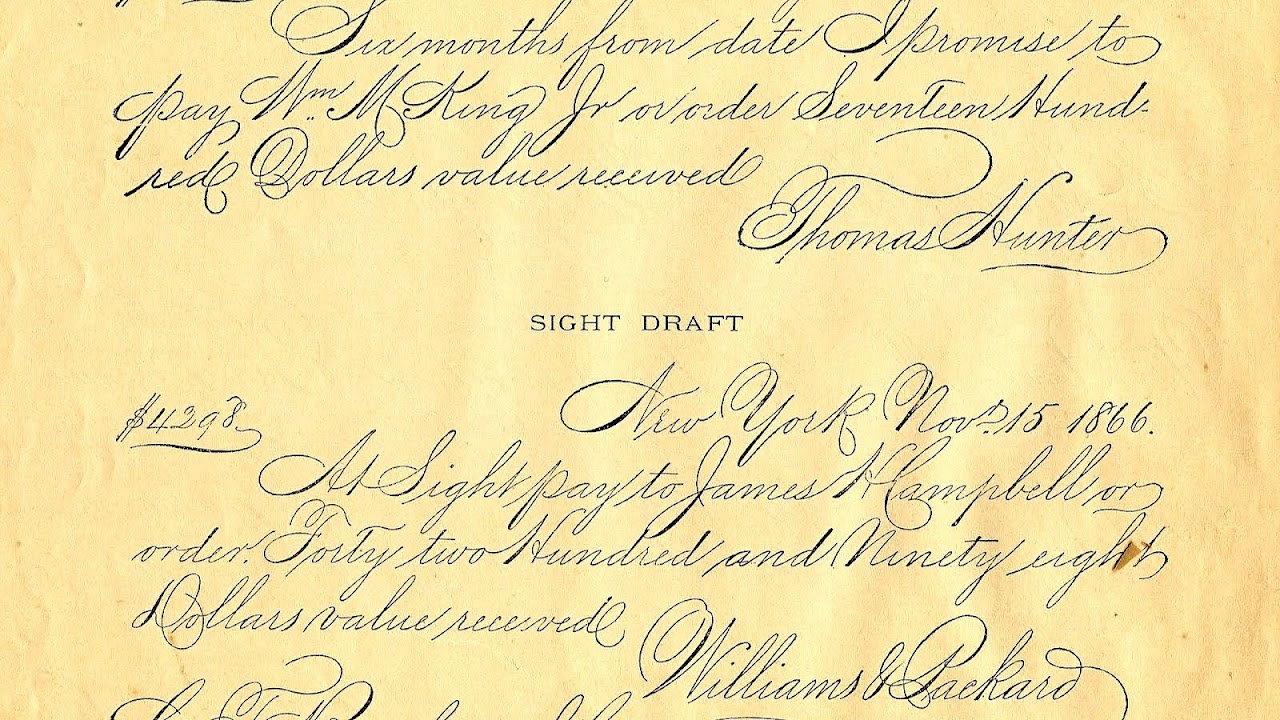 Six months from date I promise to
pay Wm. M King Jr or order Seventeen Hund-
red Dollars value received
Thomas Hunter
SIGHT DRAFT
New York Nov. 15 1866.
$4298
At Sight pay to James H Campbell or
order. Forty two Hundred and Ninety eight
Dollars value received
Williams & Packard